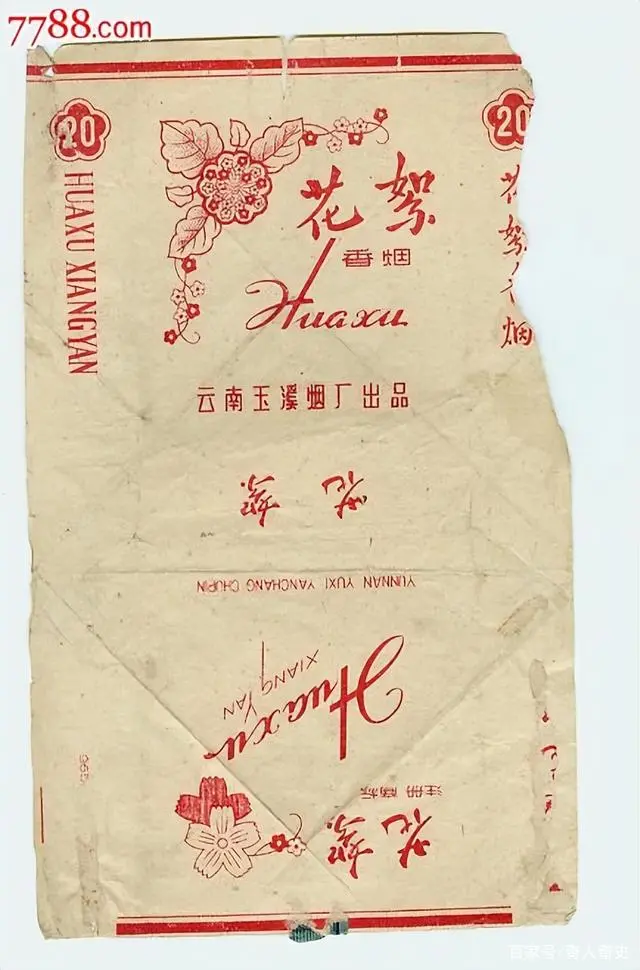 7788.com
20
HUAXU XIANGYAN
花絮
香烟
Huaxu
云南玉溪烟厂出品
20
花絮
烟
花絮
YUNNAN YUXI YANCHANG CHUPIN
Huaxu
XIANGYAN
注册商标
花絮